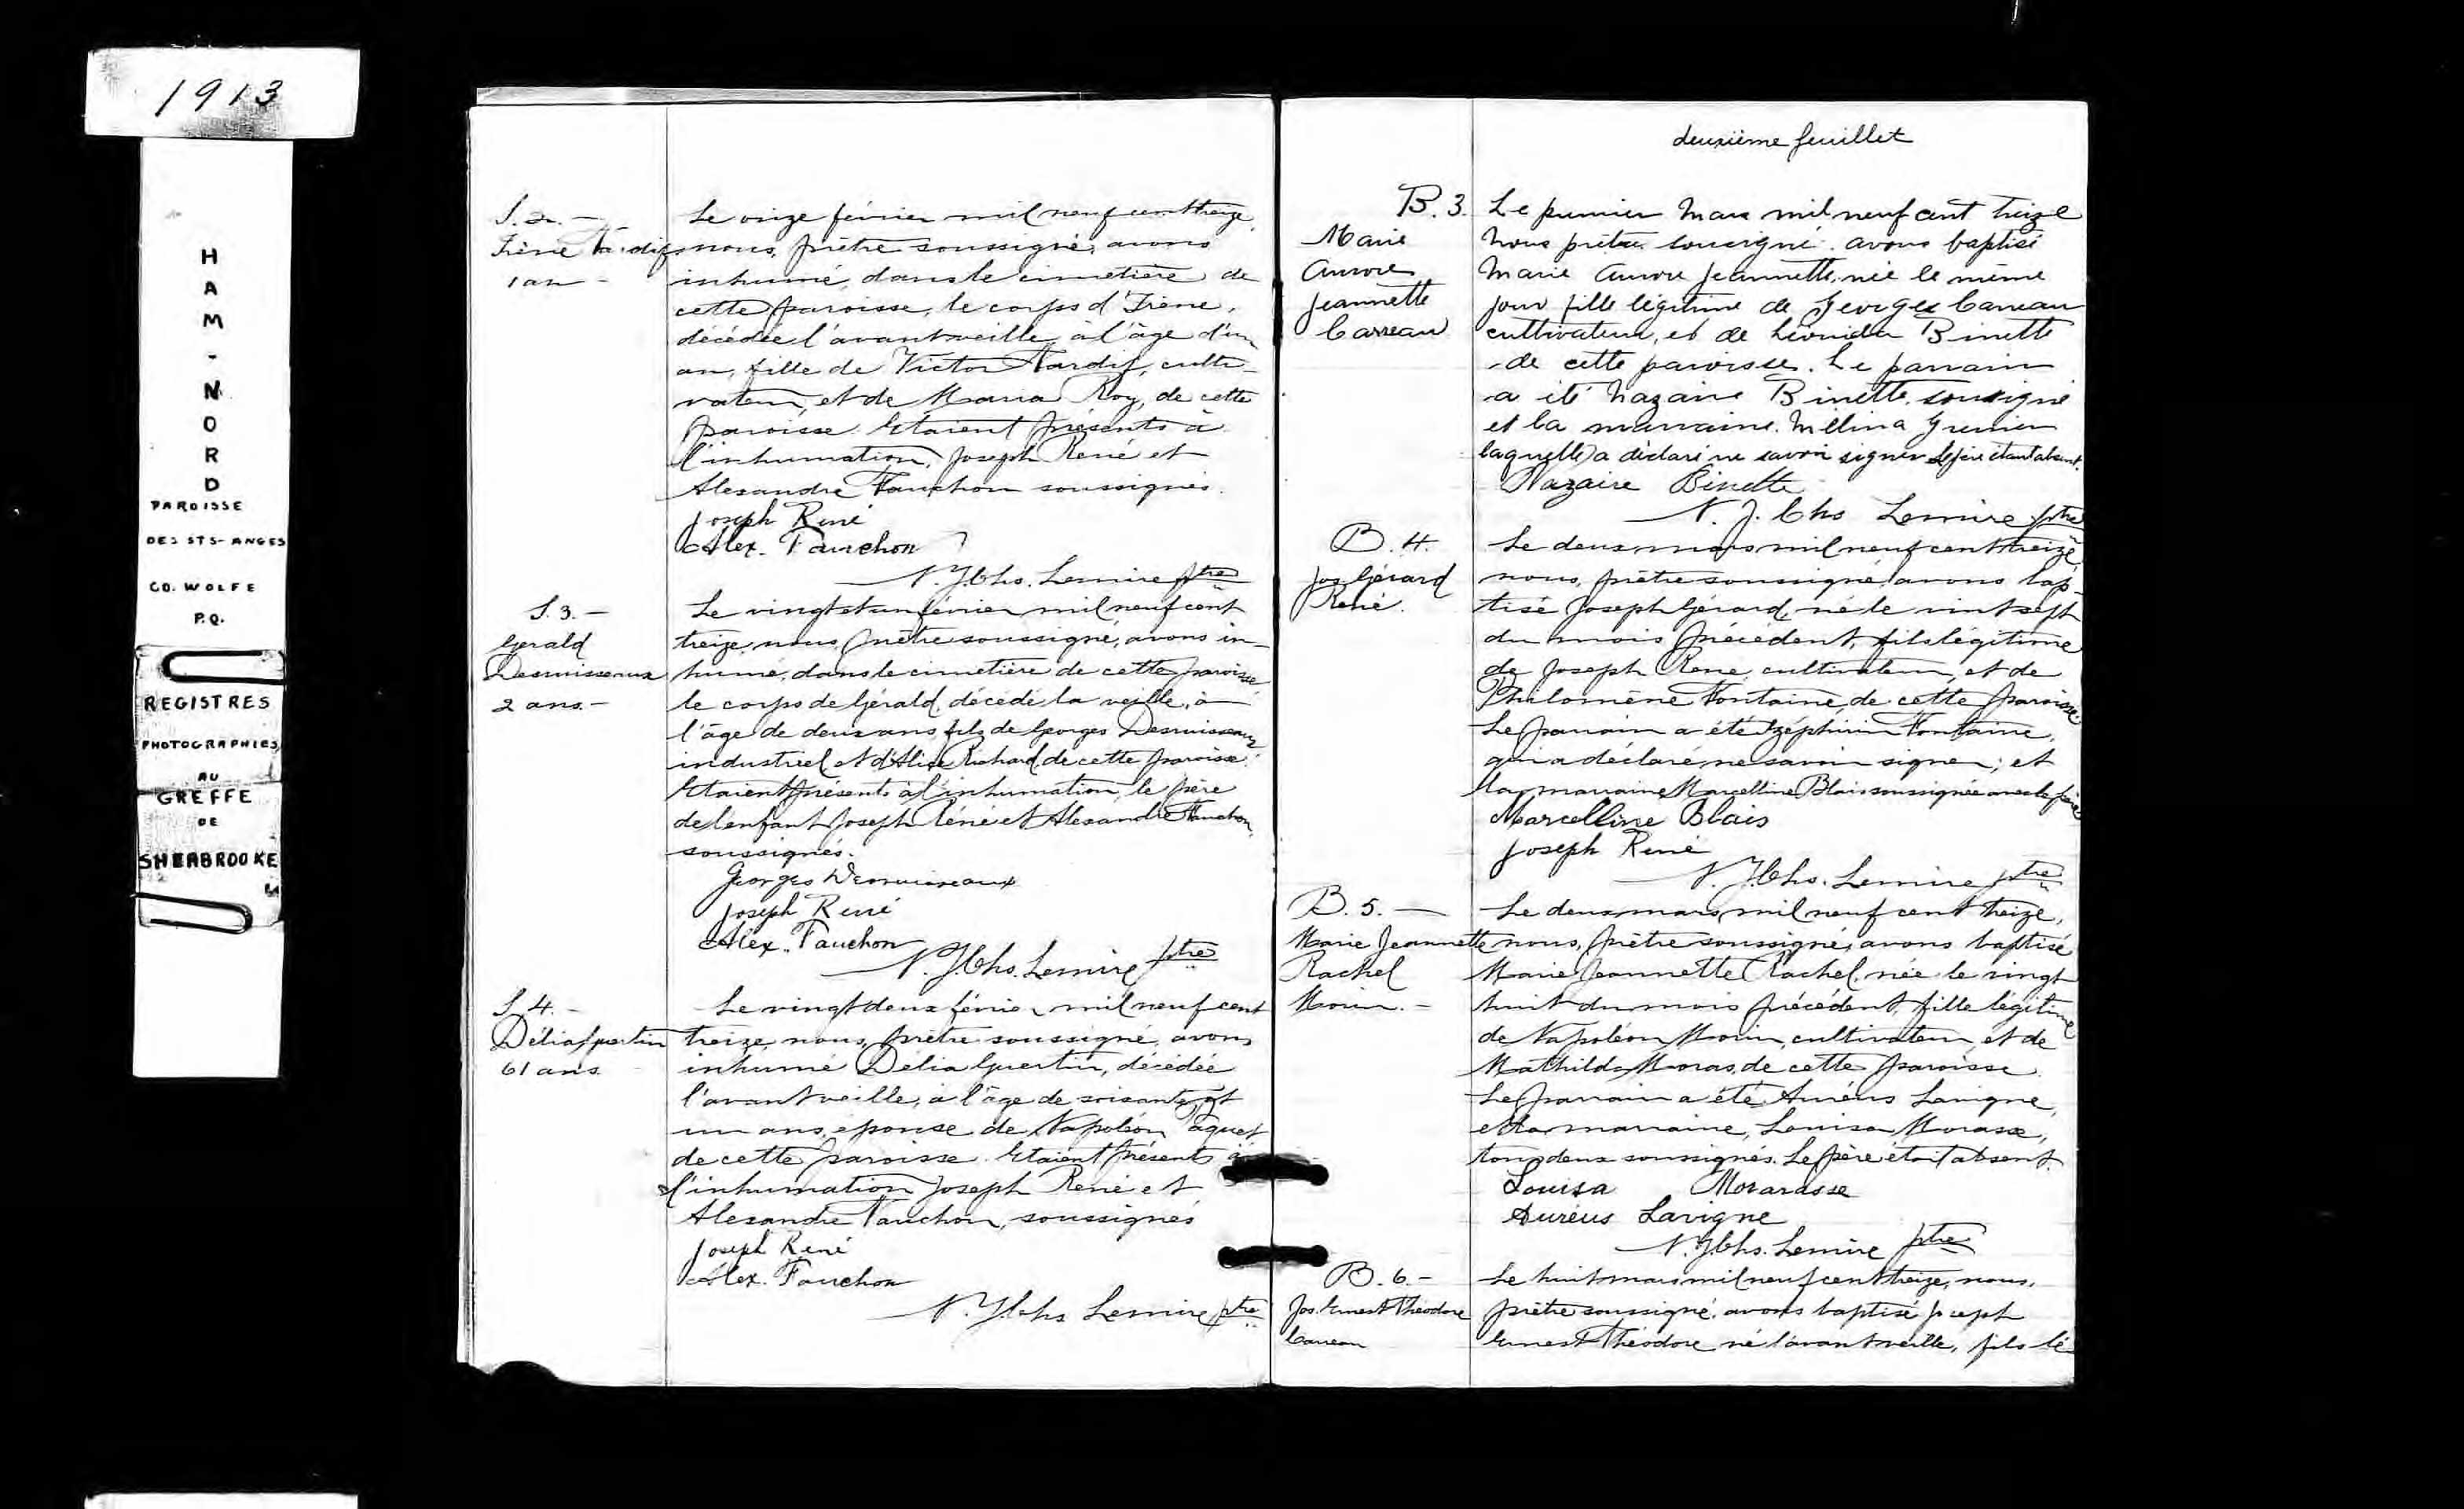 1913
HAM-NORD
PAROISSE
DES STS-ANGES
CO. WOLFE
P.Q.
REGISTRES
PHOTOGRAPHIES
AU
GREFFE
DE
SHERBROOKE
S. 2. —
Irène Tardif
1 an —
Le onze février mil neuf cent treize,
nous, prêtre soussigné, avons
inhumé, dans le cimetière de
cette paroisse, le corps d'Irène,
décédée l'avant veille, à l'âge d'un
an, fille de Victor Tardif, culti-
vateur, et de Maria Roy, de cette
paroisse. Etaient présents à
l'inhumation, Joseph René et
Alexandre Fauchon soussignés.
Joseph René
Alex. Fauchon
N. J. Chs. Lemire ptre
S. 3. —
Gérald
Desruisseaux
2 ans. —
Le vingt et un février mil neuf cent
treize, nous, prêtre soussigné, avons in-
humé, dans le cimetière de cette paroisse
le corps de Gérald, décédé la veille, à
l'âge de deux ans, fils de Georges Desruisseaux
industriel et d'Alice Richard, de cette paroisse.
Etaient présents à l'inhumation, le père
de l'enfant Joseph René et Alexandre Fauchon,
soussignés.
Georges Desruisseaux
Joseph René
Alex. Fauchon
N. J. Chs. Lemire ptre
S. 4. —
Délia Guertin
61 ans
Le vingt deux février mil neuf cent
treize, nous, prêtre soussigné, avons
inhumé Délia Guertin, décédée
l'avant veille, à l'âge de soixante et
un ans, épouse de Napoléon
de cette paroisse. Etaient présents à
l'inhumation Joseph René et
Alexandre Fauchon, soussignés
Joseph René
Alex. Fauchon
N. J. Chs Lemire ptre
deuxième feuillet
B. 3.
Marie
Aurore
Jeannette
Carreau
Le premier Mars mil neuf cent treize
Nous prêtre soussigné avons baptisé
Marie Aurore Jeannette, née le même
jour fille légitime de Georges Carreau
cultivateur, et de Léonida Binette
de cette paroisse. Le parrain
a été Nazaire Binette soussigné
et la marraine. Mélina Grenier
laquelle a déclaré ne savoir signer. Le père étant absent.
Nazaire Binette
N. J. Chs Lemire ptre
B. 4.
Jos. Gérard
René.
Le deux mars mil neuf cent treize,
nous, prêtre soussigné, avons bap-
tisé Joseph Gérard, né le vint sept
du mois précédent, fils légitime
de Joseph René, cultivateur, et de
Philomène Fontaine, de cette paroisse.
Le parrain a été Zéphirin Fontaine,
qui a déclaré ne savoir signer; et
la marraine Marcelline Blais soussignée avec le père
Marcelline Blais
Joseph René
N. J. Chs. Lemire ptre
B. 5. —
Marie Jeannette
Rachel
Morin. —
Le deux mars mil neuf cent treize,
nous, prêtre soussigné, avons baptisé
Marie Jeannette Rachel, née le vingt
huit du mois précédent, fille légitime
de Napoléon Morin, cultivateur, et de
Mathilda Moras, de cette paroisse.
Le parrain a été Auréus Lavigne,
et la marraine, Louisa Morasse,
tous deux soussignés. Le père était absent.
Louisa Morarasse
Auréus Lavigne
N. J. Chs. Lemire ptre
B. 6. —
Jos. Ernest Théodore
Carreau
Le huit mars mil neuf cent treize, nous,
prêtre soussigné, avons baptisé Joseph
Ernest Théodore né l'avant veille, fils lé